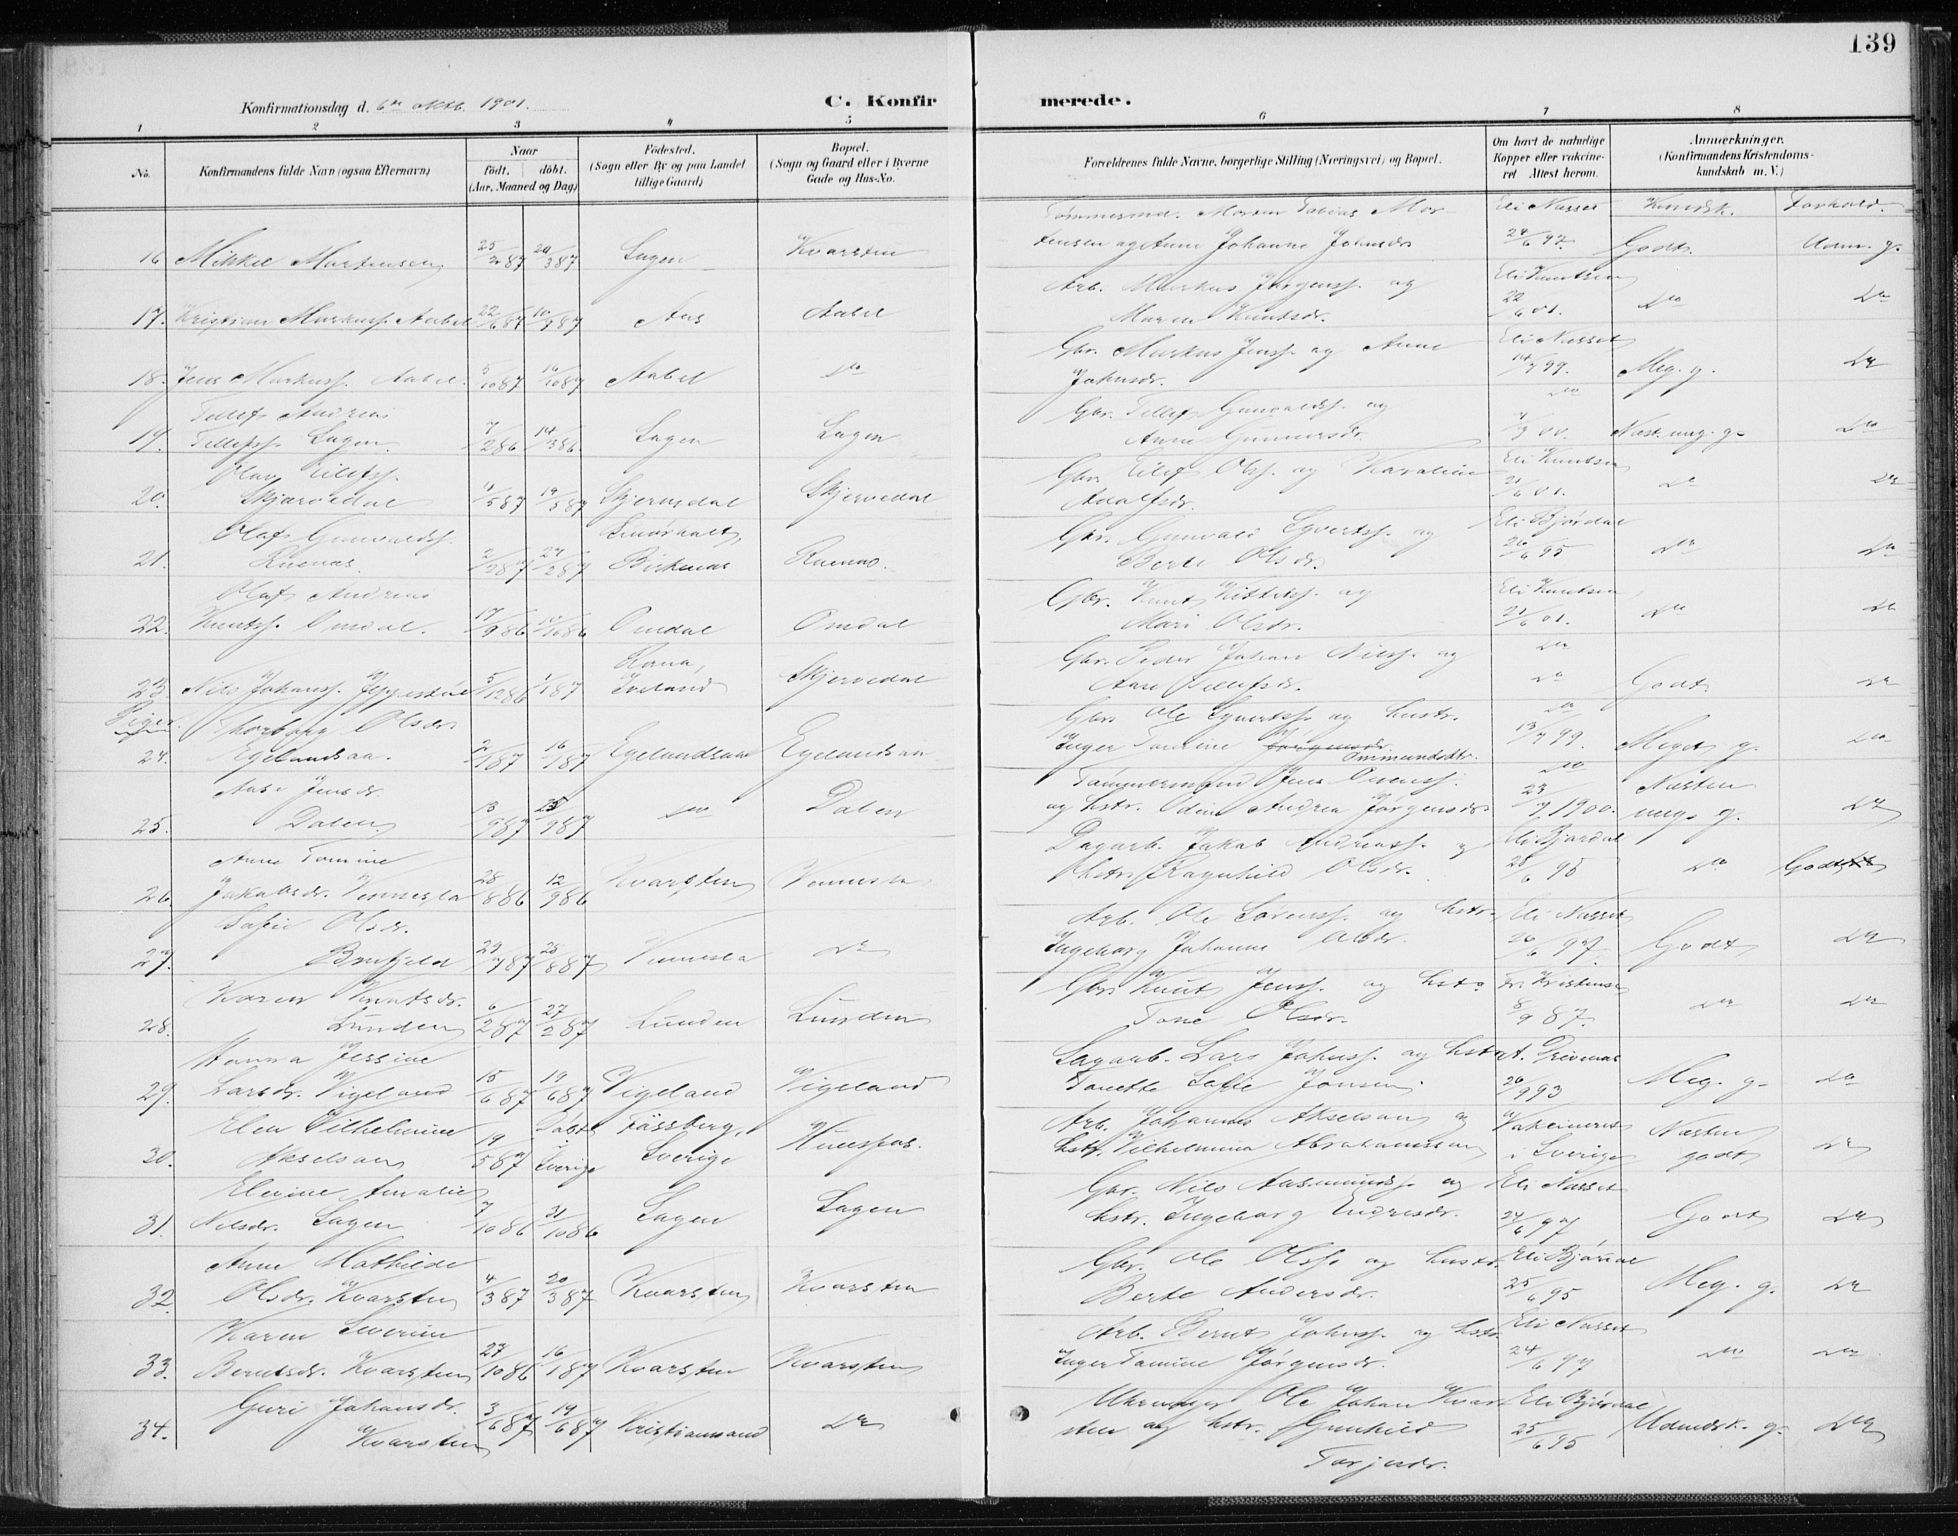 139
Konfirmationsdag d. 6te Oktb. 1901.
C. Konfirmerede.
1 2 3 4 5 6 7 8
No.
Konfirmandens fulde Navn (ogsaa Efternavn)
Naar
født. døbt.
(Aar, Maaned og Dag)
Fødested.
(Sogn eller By og paa Landet
tillige Gaard)
Bopæl.
(Sogn og Gaard eller i Byerne
Gade og Hus-No.
Forældrenes fulde Navne, borgerlige Stilling (Næringsvei) og Bopæl.
Om havt de naturlige
Kopper eller vakcine-
ret Attest herom.
Anmærkninger.
(Konfirmandens Kristendoms-
kundskab m. V.)
Kundsk. Forhold.
Tømmermd. Morten Tobias Mor- Eli Næsset
16 Mikkel Martensen 25/2 87 20/3 87 Sagen Kvarsten
tensen og Anne Johanne Johnsdr. 24/6 97. Godt. Udm. g.
Arb. Markus Jørgenss. og Eli Knutsen
17. Kristian Markuss. Aabel 22/6 87 10/7 87 Aas Aabel
Maren Knutsdr. 22/6 01. do do
Gbr. Markus Jenss. og Anne Eli Næsset
18. Jens Markuss. Aabel. 5/10 87 16/10 87 Aabel do
Johnsdr. 14/7 99. Meg. g. do
Tellef Andreas
Gbr. Tellef Gunvaldss. og do
19. Tellefss. Sagen 7/2 86 14/3 86 Sagen Sagen
Anne Gunnarsdr. Næst. meg. g. do
Olav Eilefss.
Gbr. Eilef Olss. og Karoline Eli Knutsen
20. Skjærvedal Skjervedal Skjervedal
Adolfsdr. 21/6 01. do do
Olaf Gunvaldss.
Gbr. Gunvald Syvertss. og Eli Bjørdal
21. Ruenæs 2/2 87 27/2 87 Birkenæs Ruenæs.
Berte Olsdr. 26/6 95 do do
Olaf Andreas
Gbr. Knut Kittilss. og Eli Knutsen
22. Knutss. Omdal. 17/9 86 10/10 86 Omdal Omdal
Mari Olsdr. 21/6 01. do do
Gbr. Peder Johan Nilss. og do
23. Nils Johanss. Iggestøl 5/12 86 1/1 87 Iveland Skjervedal
Aase Tellefsdr. do Godt do
Piger.
Thorborg Olsdr.
Gbr. Ole Syvertss. og hustr. do
24. Egelandsaa. 2/1 87 16/1 87 Egelandsaa Egelandsaa
Inger Tomine Ommundsdtr. 13/7 99. Meget g. do
Aase Jensdr.
Tømmermand Jens Ovenss. do Næsten
25. Dalen 13/9 87 25/9 87 do Dalen
og hstr. Oline Andrea Jørgensdr. 23/7 1900. meg. g. do
Anne Tomine
Dagarb. Jakob Andreass. og Eli Bjørdal
26. Jakobsdr. Vennesla 28/8 86 12/9 86 Kvarsten Vennesla
hstr. Ragnhild Olsdr. 25/6 95 do Godt
Sofie Olsdr.
Arb. Ole Sørenss. og hstr. Eli Næsset
27. 29/7 87 28/8 87 Vennesla do
Ingeborg Johanne Olsdr. 26/6 97. Godt do
Karen Knutsdr.
Gbr. Knut Jenss. og hstr. Fr. Kristensen
28. Lunden 6/2 87 27/2 87 Lunden Lunden
Tone Olsdr. 8/9 87. do do
Hanna Jessine
Sagarb. Lars Johnss. og hstr. A. Drivenæs
29. Larsdr. Vigeland 15/6 87 19/6 87 Vigeland Vigeland
Tonette Sofie Jonsen. 26/9 93 Meg. g. do
Elen Vilhelmine Døbt Fässberg,
Arb. Johannes Akselsson og Vakcineret Næsten
30. Akselsson 19/5 87 i Sverige Sverige Hunespas.
hstr. Vilhelmina Abrahamsson i Sverige godt do
Elevine Amalie
Gbr. Nils Aasmundss. og Eli Næsset
31. Nilsdr. Sagen 7/10 86 31/10 86 Sagen Sagen
hstr. Ingeborg Endresdr. 24/6 97 Godt do
Anne Mathilde
Gbr. Ole Olss. og hustr. Eli Bjørdal
32. Olsdr. Kvarsten 4/3 87 20/3 87 Kvarsten Kvarsten
Berte Andersdr. 25/6 95 Meg. g. do
Karen Severine
Arb. Bernt Johnss. og hstr. Eli Næsset
33. Berntsdr. Kvarsten 27/10 86 16/1 87 Kvarsten Kvarsten
Inger Tomine Jørgensdr. 24/6 97 do do
Guri Johansdr.
Uhrmager Ole Johan Kvar- Eli Bjørdal
34. Kvarsten 3/6 87 19/6 87 Kristianssand do
sten og hstr. Gunhild 25/6 95 Udmdsk. g. do
Torjusdr.